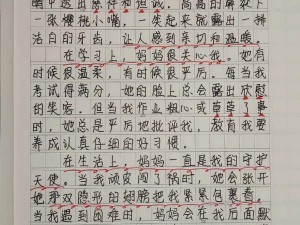 睛中透出慈祥和温暖。高高的鼻梁下
一张樱桃小嘴，一笑起来就露出一排
洁白的牙齿，让人感到亲切和温暖。
在学习上，妈妈很关心我。她有
时候很温柔，有时候很严厉。每当我
考试得满分，她的脸上总会露出欣慰
的笑容。但当我作业粗心或草草了事
时，她总是严厉地批评我，教育我要
养成认真仔细的好习惯。
在生活上，妈妈一直是我的守护
天使。当我顽皮闯了祸时，她会张开
她那双隐形的翅膀把我紧紧包裹着。
当我遇到困难时，妈妈会在我后面默